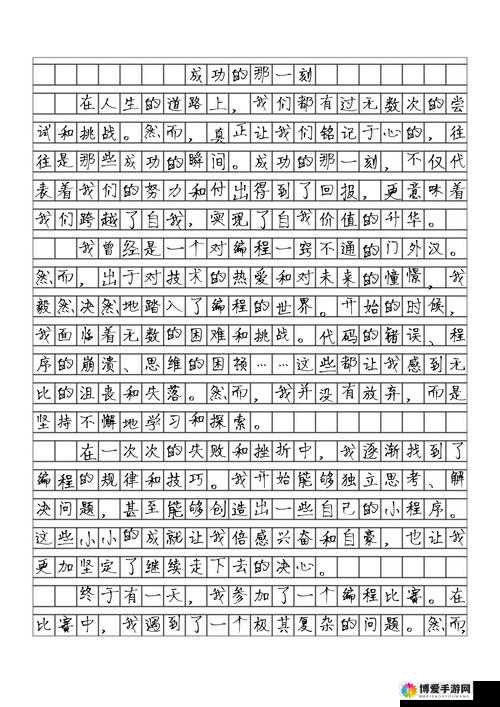 成功的那一刻
在人生的道路上，我们都有过无数次的尝
试和挑战。然而，真正让我们铭记于心的，往
往是那些成功的瞬间。成功的那一刻，不仅代
表着我们的努力和付出得到了回报，更意味着
我们跨越了自我，实现了自我价值的升华。
我曾经是一个对编程一窍不通的门外汉。
然而，出于对技术的热爱和对未来的憧憬，我
毅然决然地踏入了编程的世界。开始的时候，
我面临着无数的困难和挑战。代码的错误、程
序的崩溃、思维的困顿……这些都让我感到无
比的沮丧和失落。然而，我并没有放弃，而是
坚持不懈地学习和探索。
在一次次的失败和挫折中，我逐渐找到了
编程的规律和技巧。我开始能够独立思考、解
决问题，甚至能够创造出一些自己的小程序。
这些小小的成就让我倍感兴奋和自豪，也让我
更加坚定了继续走下去的决心。
终于有一天，我参加了一个编程比赛。在
比赛中，我遇到了一个极其复杂的问题。然而，
博爱手游网